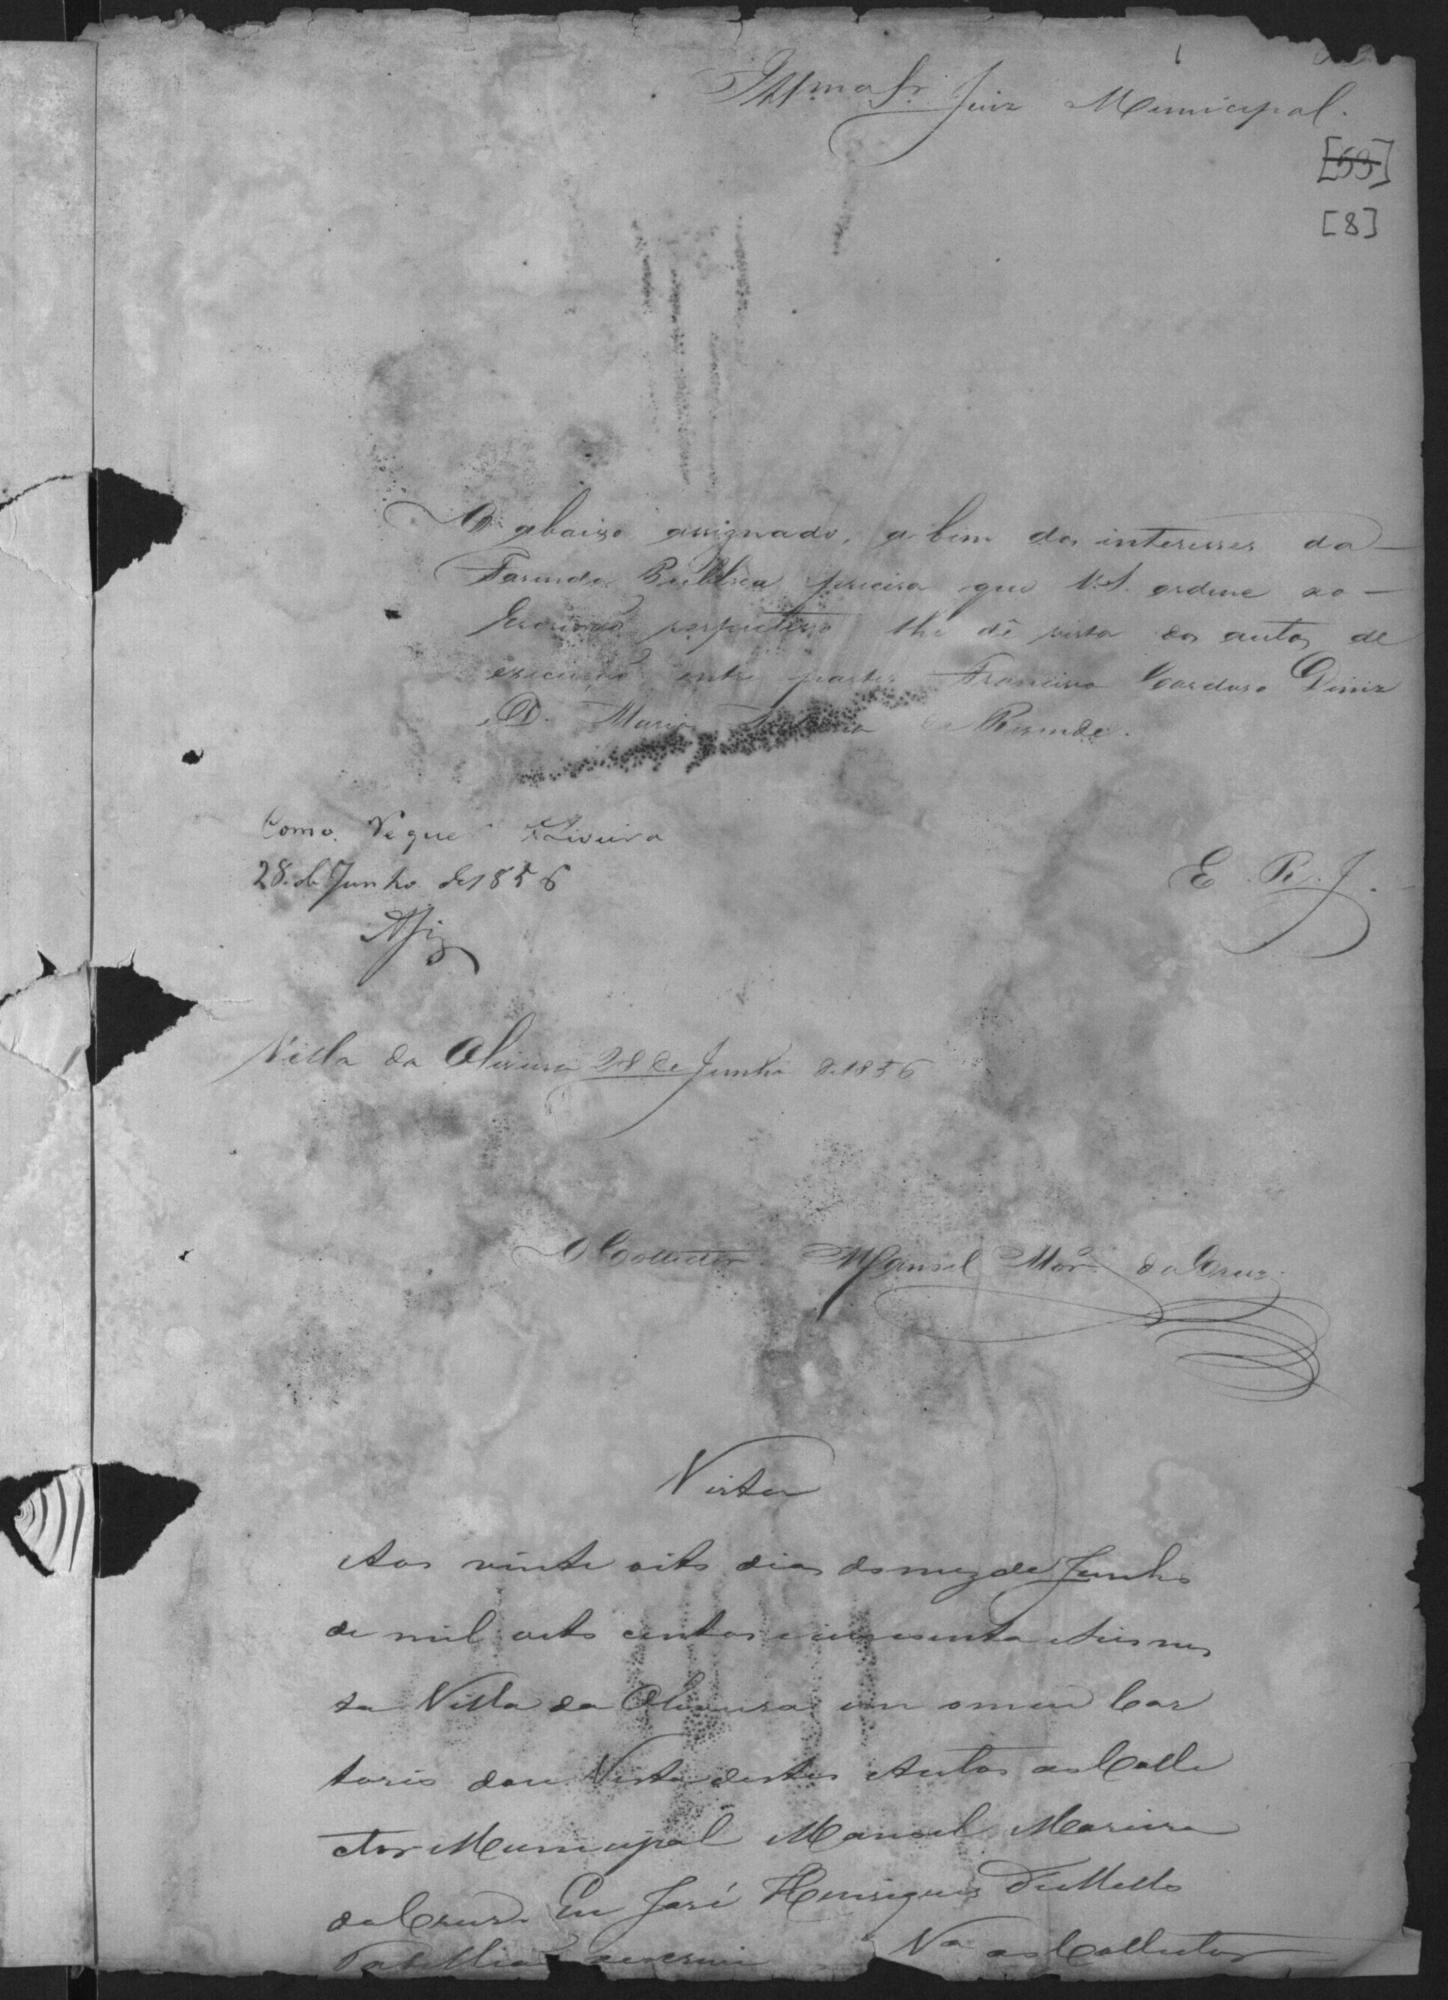 Illmo Sr. Juiz Municipal.
[53]
[8]
O abaixo assignado, a bem dos interesses da
Fasenda Publica precisa que V.S. ordene ao
Escrivão respectivo lhe dê vista dos autos de
execução entre partes Francisco Cardoso Diniz
e D. Maria de Resende.
Como requer Oliveira
28 de Junho de 1856
E. R. J.
Villa da Oliveira 28 de Junho de 1856
O Collector Manoel Mora. da Cruz
Vista
Aos vinte oito dias do mez de Junho
de mil oito centos cincoenta e seis nes
ta Villa da Oliveira em o meu Car
torio dou Vista destes Autos ao Colle
ctor Municipal Manoel Moreira
da Cruz. Eu José Henriques de Mello
Tabellião escrevi Va. ao Collector